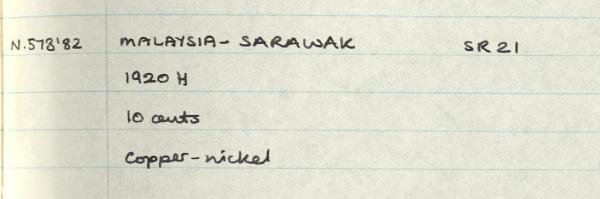 N.573'82 MALAYSIA - SARAWAK SR 21
1920 H
10 cents
Copper-nickel